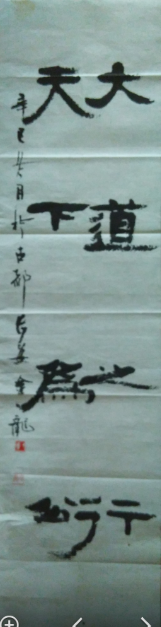 大道之行
天下為公
辛巳冬月於古都長安龍